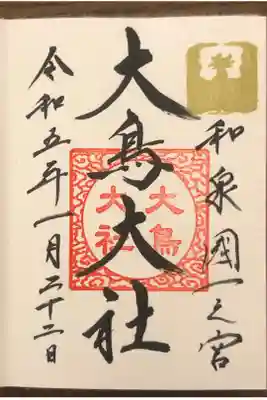 和泉國一之宮
大鳥大社
大鳥
大社
令和五年一月二十二日